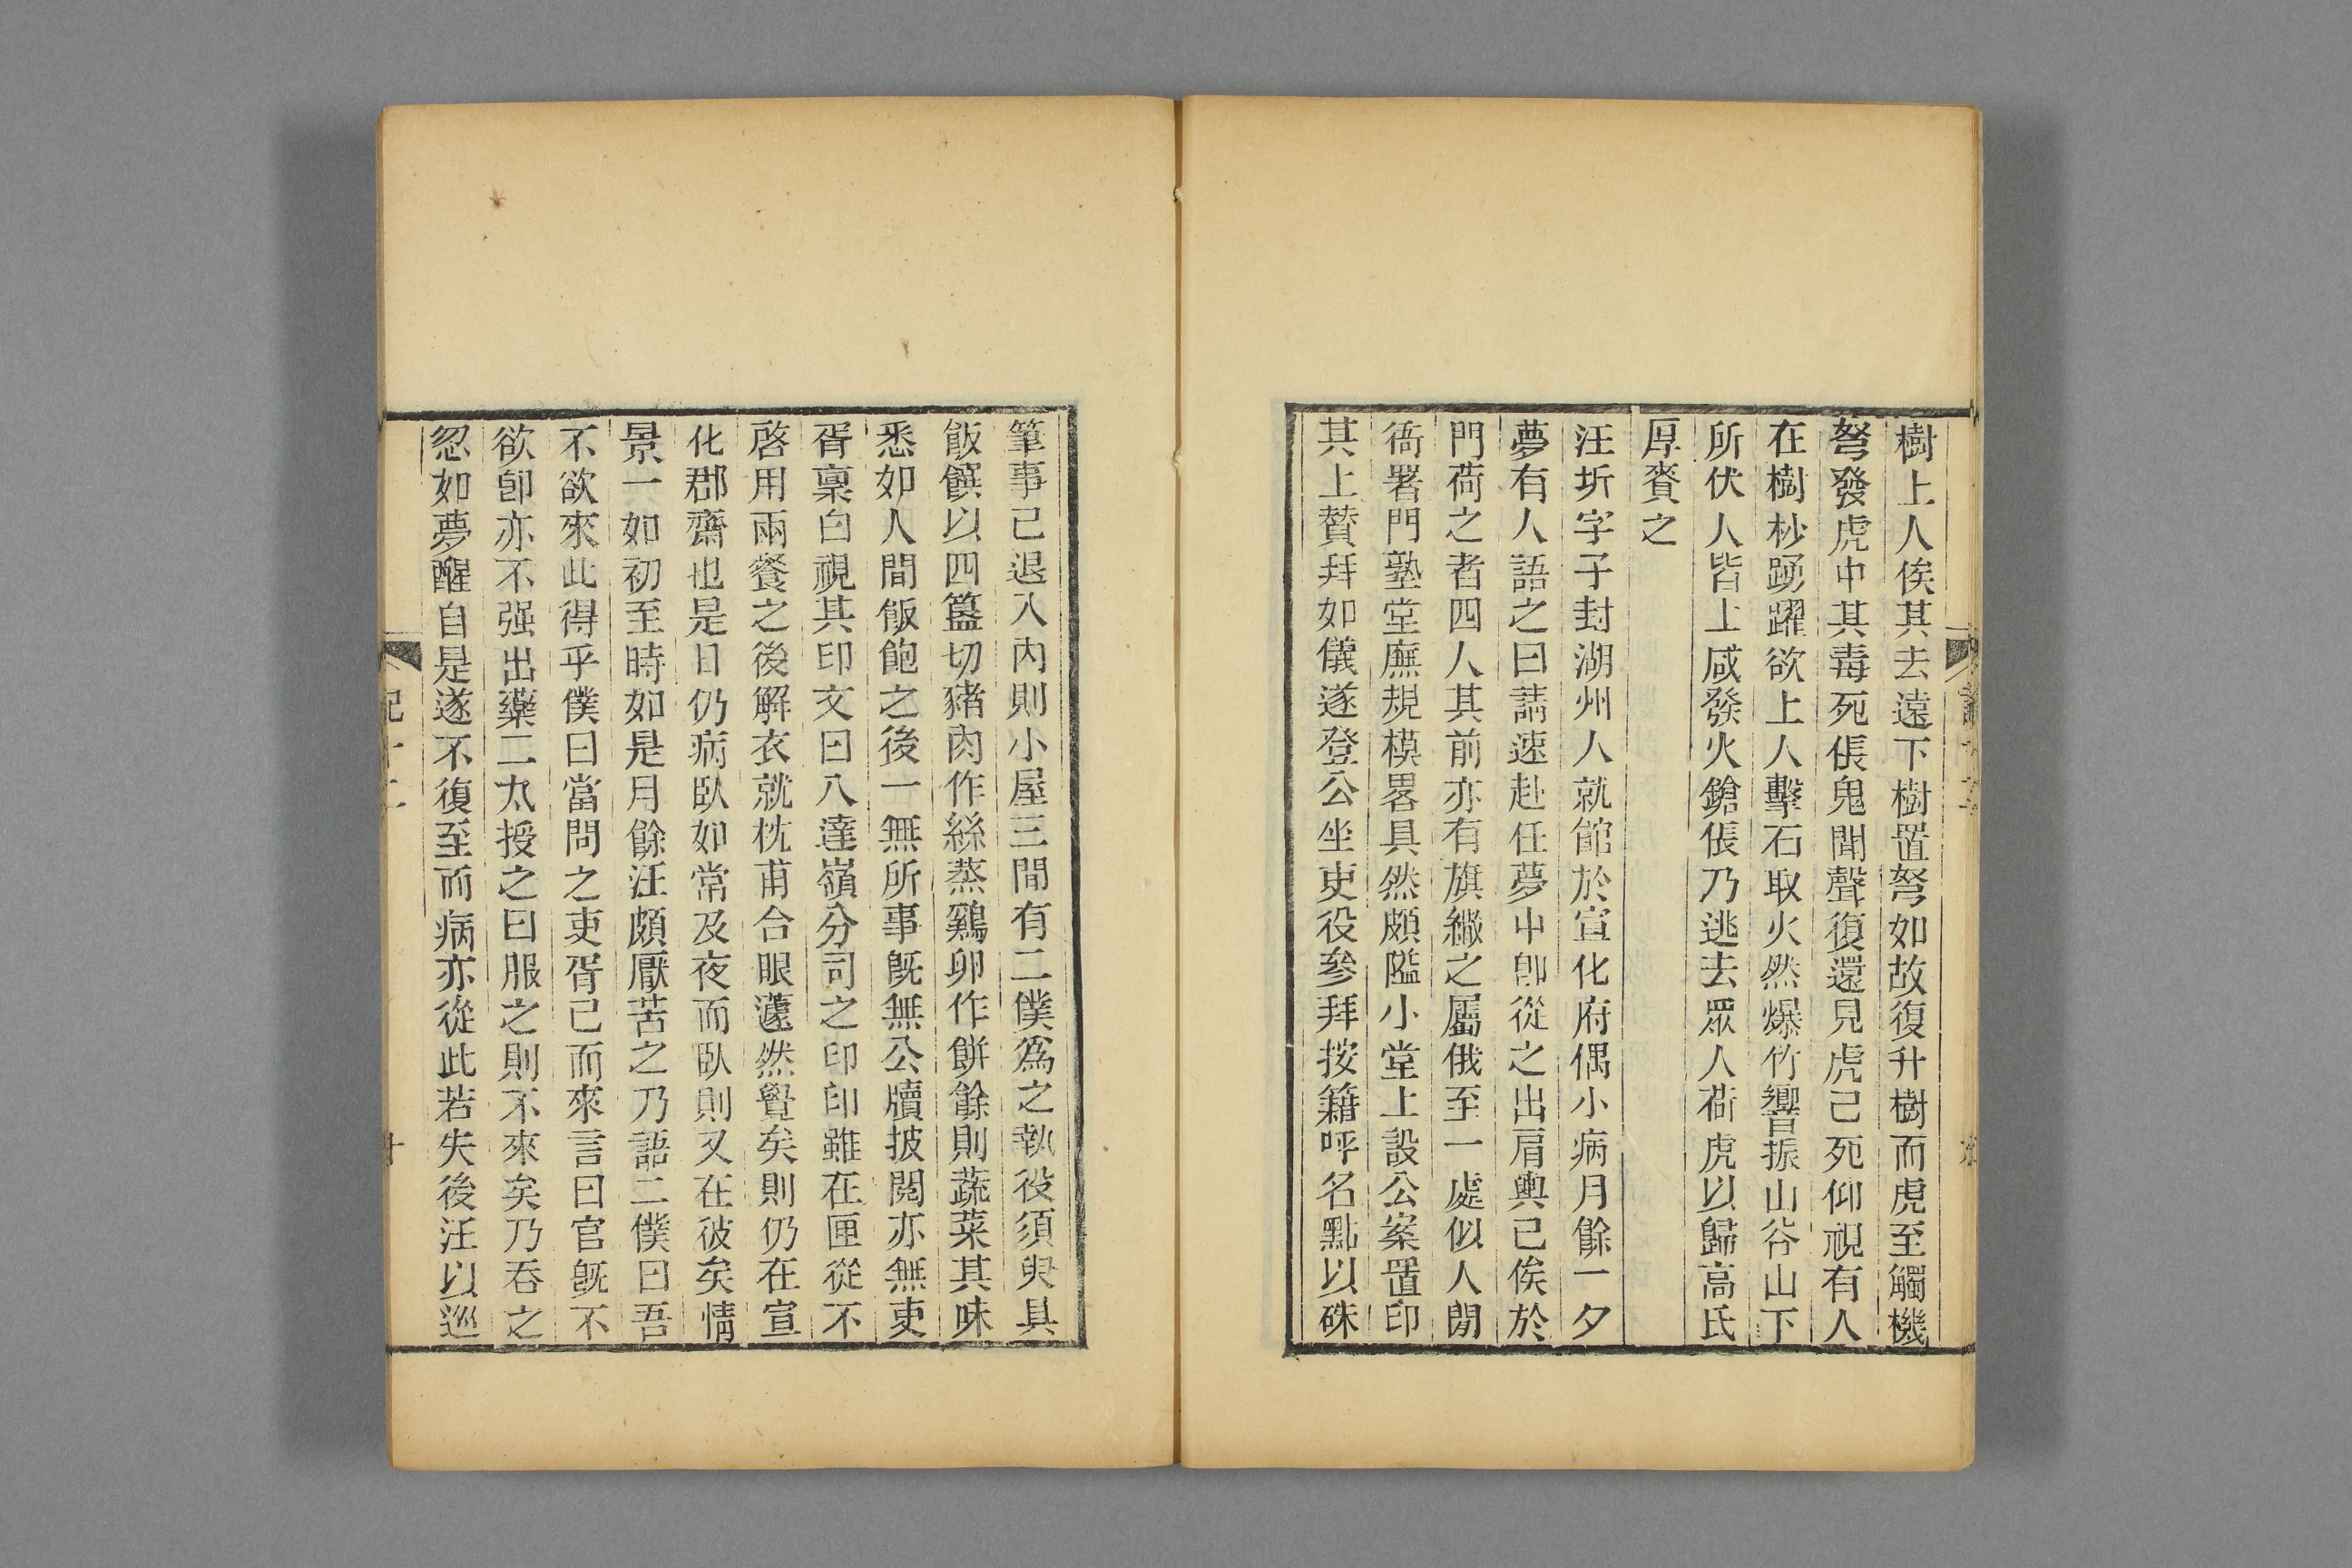 樹上人俟其去遠下樹置弩如故復升樹而虎至觸機
弩發虎中其毒死倀鬼聞聲復還見虎已死仰視有人
在樹杪踴躍欲上人擊石取火然爆竹響振山谷山下
所伏人皆上咸發火鎗倀乃逃去眾人荷虎以歸高氏
厚賚之
汪圻字子封湖州人就館於宣化府偶小病月餘一夕
夢有人語之曰請速赴任夢中卽從之出肩輿已俟於
門荷之者四人其前亦有旗繖之屬俄至一處似人閒
衙署門塾堂廡規模畧具然頗隘小堂上設公案置印
其上贊拜如儀遂登公坐吏役參拜按籍呼名點以硃
筆事已退入內則小屋三間有二僕爲之執役須臾具
飯饌以四簋切豬肉作絲蒸鷄卵作餅餘則蔬菜其味
悉如人間飯飽之後一無所事旣無公牘披閱亦無吏
胥稟白視其印文曰八達嶺分司之印印雖在匣從不
啓用兩餐之後解衣就枕甫合眼蘧然覺矣則仍在宣
化郡齋也是日仍病臥如常及夜而臥則又在彼矣情
景一如初至時如是月餘汪頗厭苦之乃語二僕曰吾
不欲來此得乎僕曰當問之吏胥已而來言曰官旣不
欲卽亦不强出藥二丸授之曰服之則不來矣乃吞之
忽如夢醒自是遂不復至而病亦從此若失後汪以巡
記十二